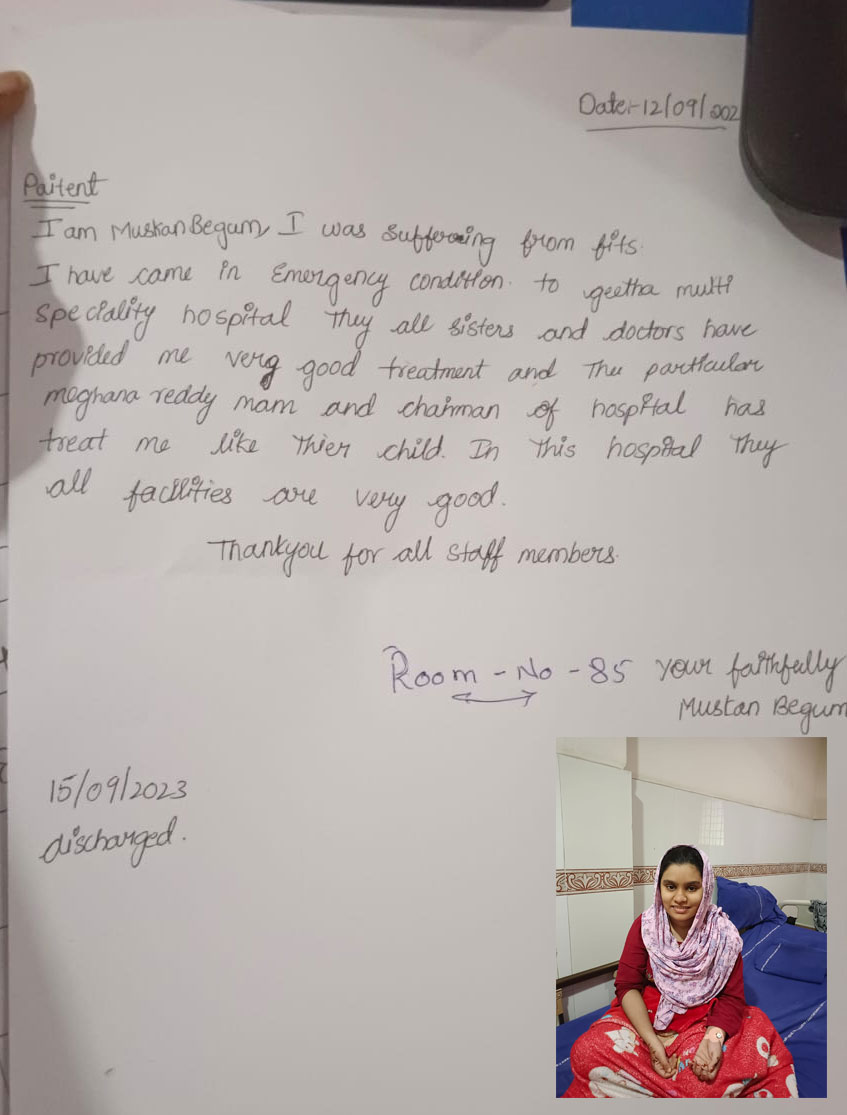 Date:-12/09/202
Paitent
I am Muskan Begum, I was suffering from fits.
I have came in Emergency condition. to geetha multi
speciality hospital They all sisters and doctors have
provided me very good treatment and The particular
meghana reddy mam and chairman of hospital has
treat me like Thier child. In this hospital They
all facilities are very good.
Thankyou for all staff members.
Room - No - 85 your faithfully
Muskan Begum
15/09/2023
discharged.